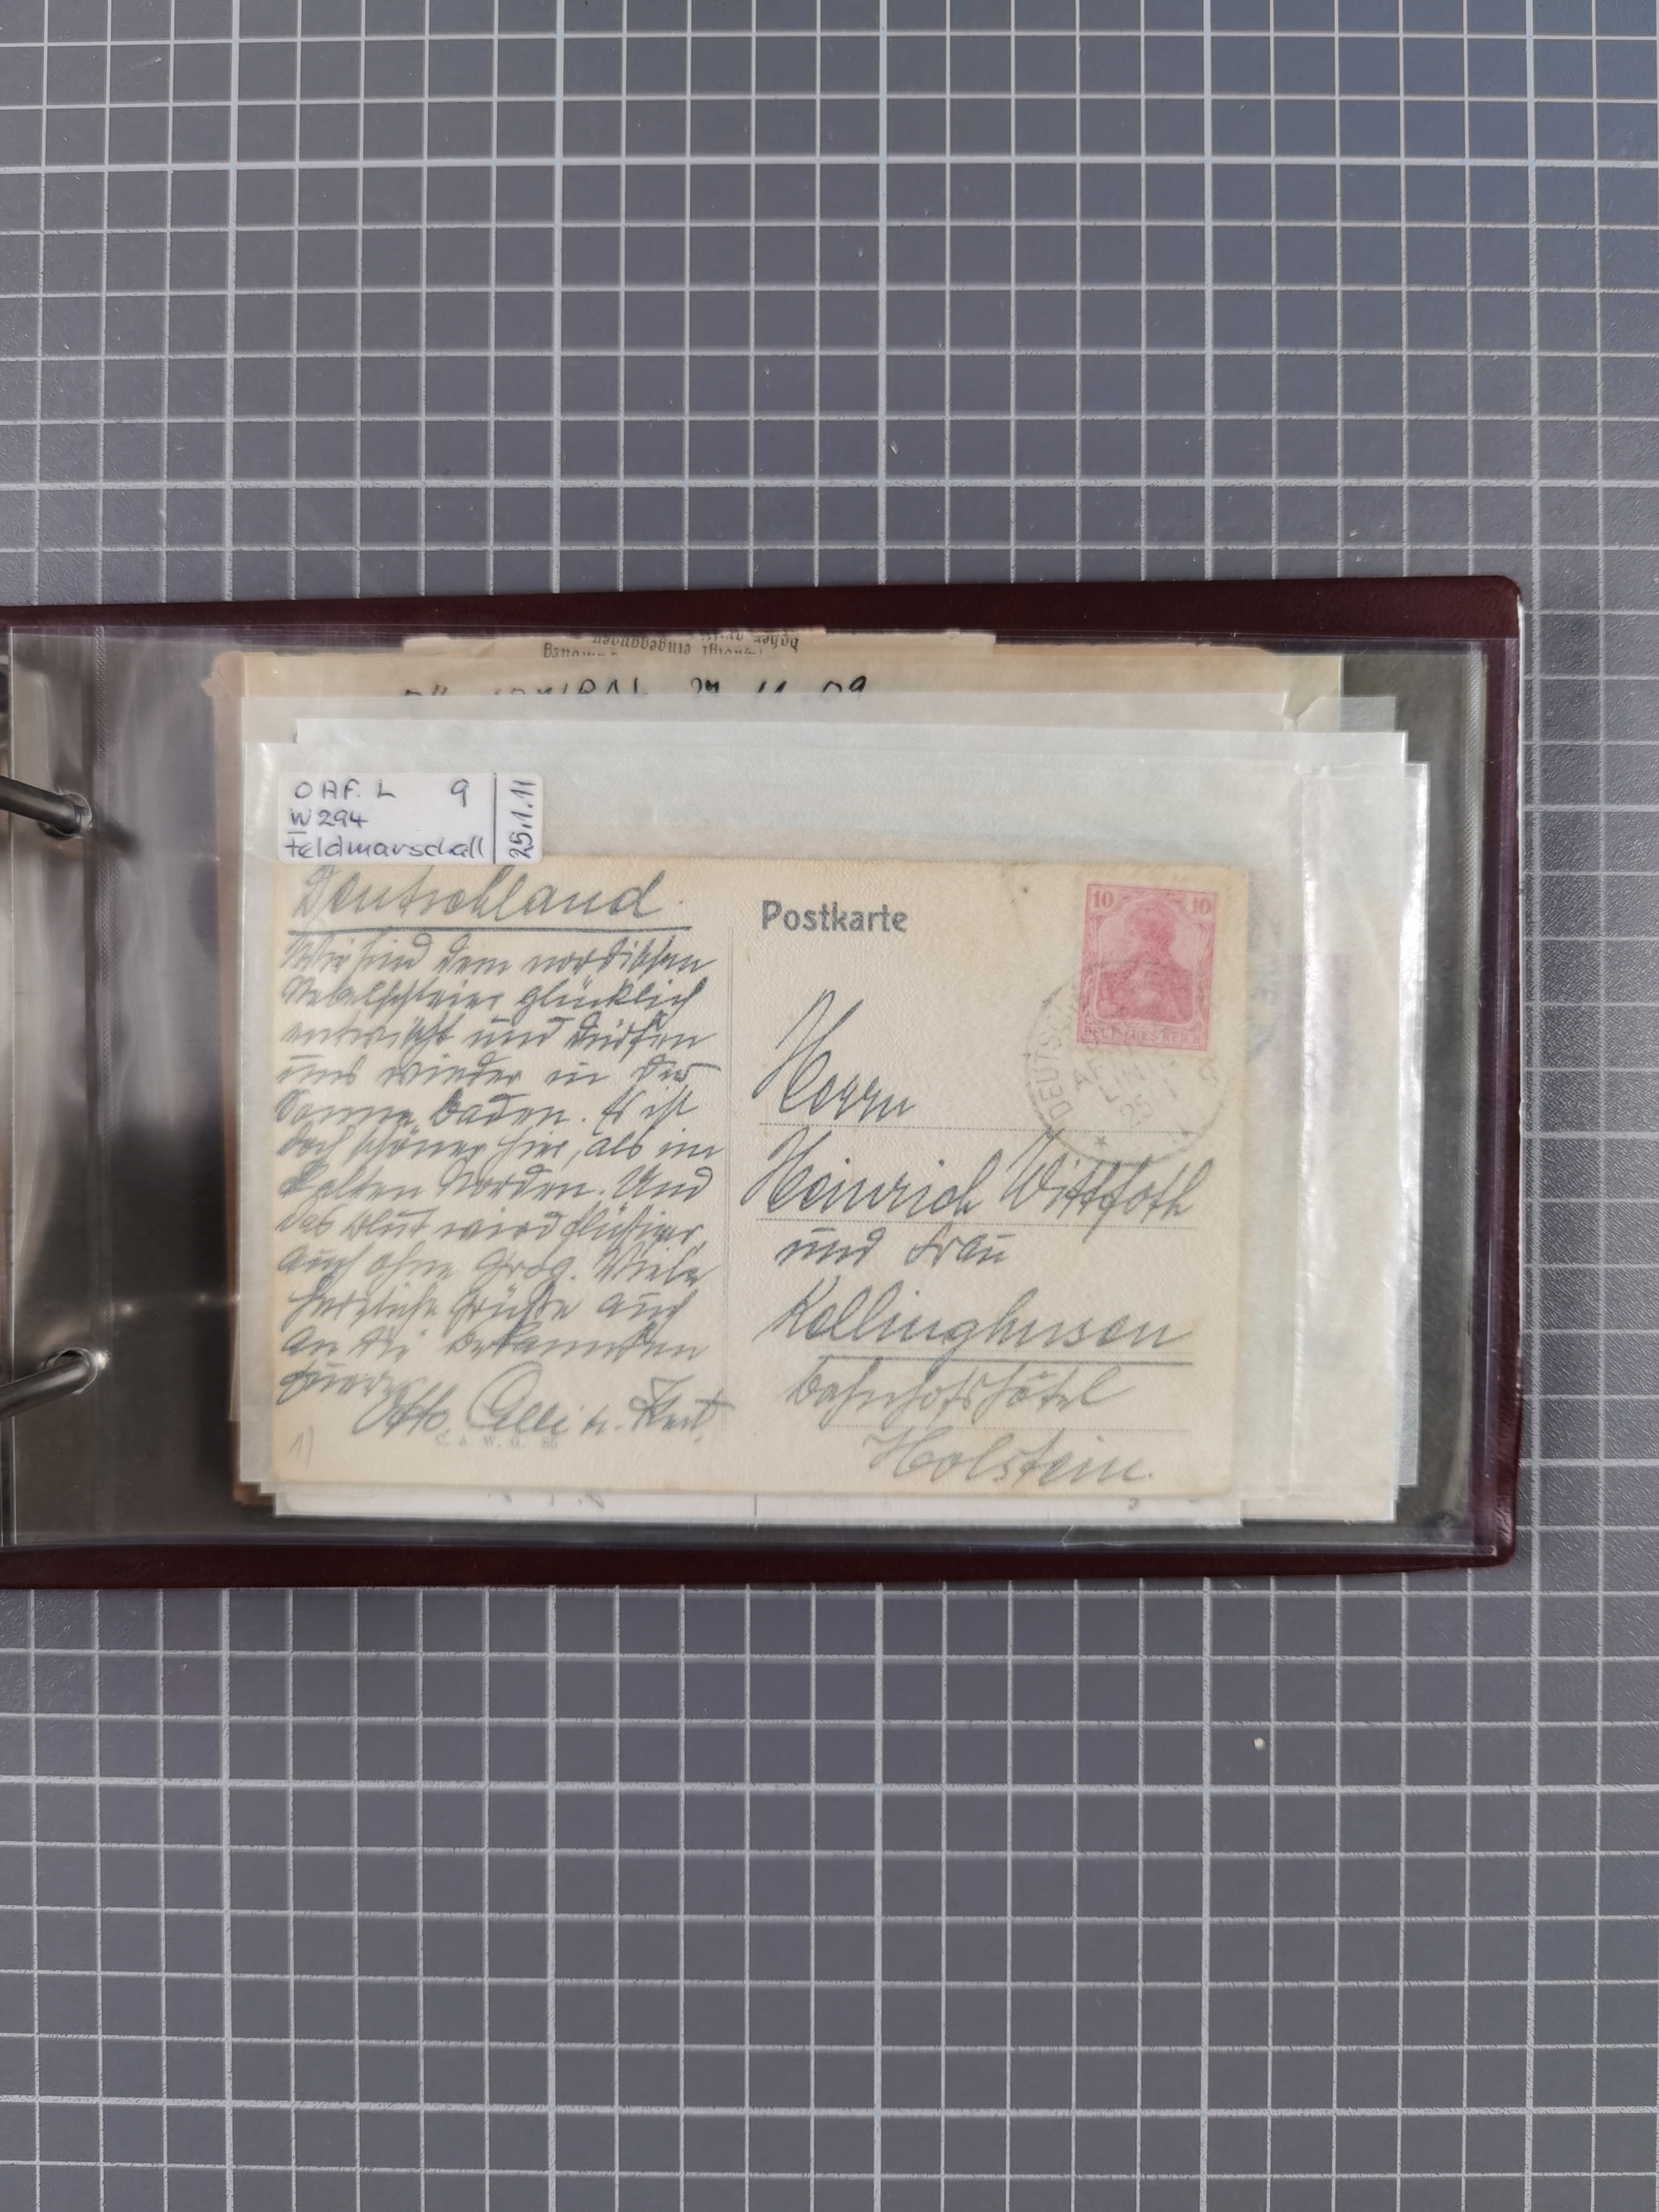 OAF. L 9
W294
Feldmarschall
25.1.11
27.11.09
Deutschland.
Wir sind dem nordischen
Nebelschleier glücklich
entwischt und dürfen
uns wieder in der
Sonne baden. Es ist
doch schöner hier, als im
kalten Norden. Und
das Blut wird flüssiger,
auch ohne Grog. Viele
herzliche Grüße auch
an die Bekannten
Otto, Elli u. Kurt.
1)
Postkarte
10 10
DEUTSCHES REICH
25 1
Herrn
Heinrich Wittfoth
und Frau
Kellinghusen
Bahnhofshotel
Holstein.